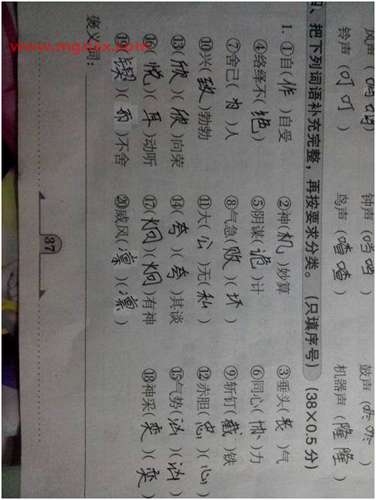 风声(呜呜) 钟声( ) 鼓声( )
铃声(叮叮) 鸟声(喳喳) 机器声(隆隆)
、把下列词语补充完整,再按要求分类。(只填序号)(38×0.5分)
1. ①自(作)自受 ②神(机)妙算 ③垂头(丧)气
④络绎不(绝) ⑤阴谋(诡)计 ⑥同心(协)力
⑦舍己(为)人 ⑧气急(败)(坏) ⑨斩钉(截)铁
⑩兴(致)勃勃 ⑪大(公)无(私) ⑫赤胆(忠)(心)
⑬(欣)(欣)向荣 ⑭(夸)(夸)其谈 ⑮气势(汹)(汹)
⑯(悦)(耳)动听 ⑰(炯)(炯)有神 ⑱神采(奕)(奕)
⑲(锲)(而)不舍 ⑳威风(凛)(凛)
褒义词:
37